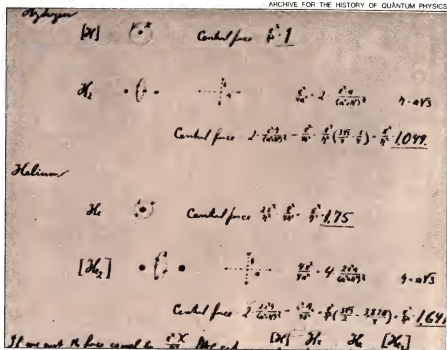 ARCHIVE FOR THE HISTORY OF QUANTUM PHYSICS
Hydrogen
[H] Central force e²/r² · 1
H₂ e²/4a² = 2 · e²a/(a²+r²)^(3/2) r = a√3
Central force 2 · e²r/(a²+r²)^(3/2) - e²/4r² = e²/r² (3√3/4 - 1/4) = e²/r² · 1,049.
Helium
He Central force 2e²/r² - e²/4r² = e²/r² · 1,75
[He₂] 4e²/4a² = 4 · 2e²a/(a²+r²)^(3/2) r = a√3
Central force
If we put the force equal to [H] H₂ He [He₂]